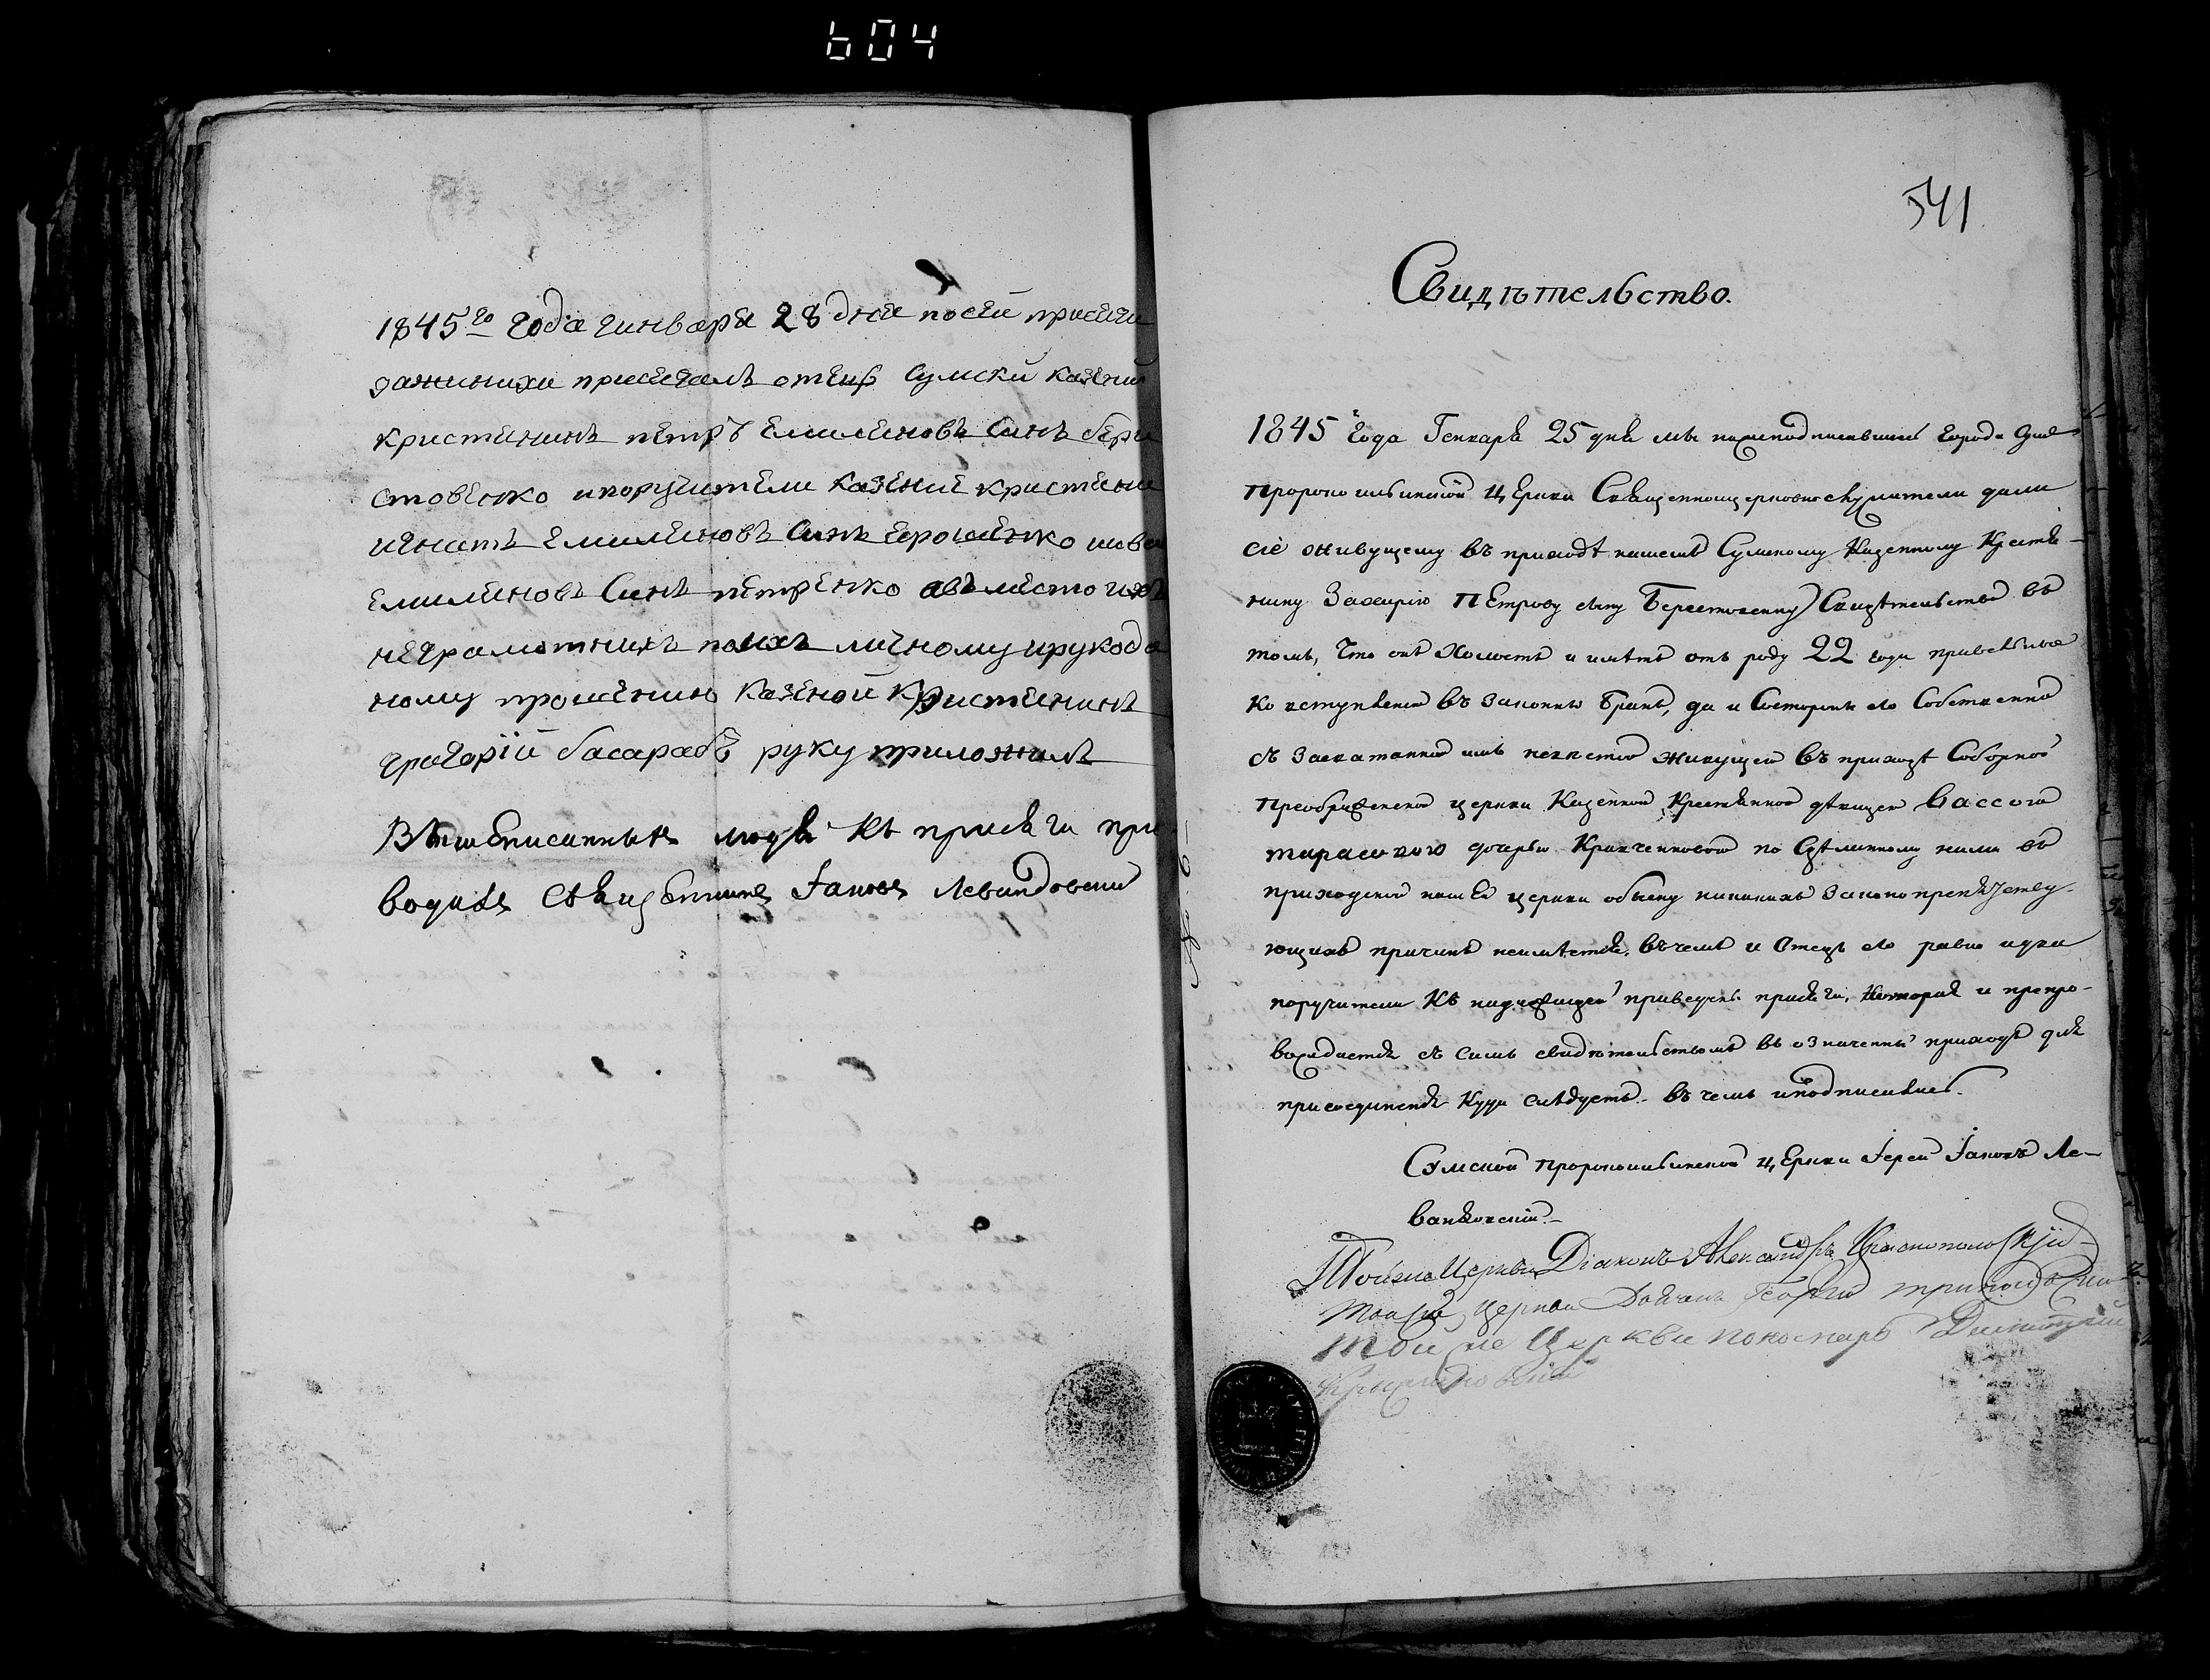 604
1845го года гинваря 28 дня посей присяги
зажениха присегалъ отецъ Сумски казений
кристенинъ петръ Емилиеновъ Синъ бери
стовенко ипоручители казение кристяни
игнатъ Емилиеновъ Синъ Ерошенко иива
Емилиеновъ Синъ петренко авъместо ихъ
неграмотнихъ поихъ личному ирукода
ному прошению казеной кристенинъ
григорій басарабъ руку приложилъ
Вышеписанныхъ людей къ присяги при
водилъ Священникъ Іаковъ Левандовский
541
Свидѣтельство.
1845 года Генваря 25 дня мы нижеподписавшиеся города Сумъ
пророко ильинской церкви Священноцерковнослужители дали
сіе живущему въ приходѣ нашемъ Сумскому Казенному Крестья-
нину Захарію Петрову сыну Берестовенку Свидѣтельство въ
томъ, что онъ Холостъ и имѣетъ отъ роду 22 года
ко вступленію въ законный бракъ, да и Состороны его Собственно
съ засватанной имъ невестой живущей въ приходѣ Соборной
Преображенской церкви Казенной Крестьянкой дѣвицей Вассою
тарасовою дочерью Кравченковой по Сдѣланному нами въ
приходской нашей церкви обыску никакихъ законопрепятству-
ющихъ причинъ неимѣется. Въчемъ и Отецъ его равно идва
поручители къ надлежащей приведены присяги, которая и препро-
вождается съ симъ свидѣтельствомъ въ означенный приходъ для
присоединенія куда слѣдуетъ. въ чемъ иподписались.
Сумской пророкоильинской церкви Іерей Іаковъ Ле-
вандовскій.
Тойже Церкви Діаконъ Александръ Краснопольскій
Тойже церкви Дьячокъ Георгій
Тойже Церкви пономарь Димитрій